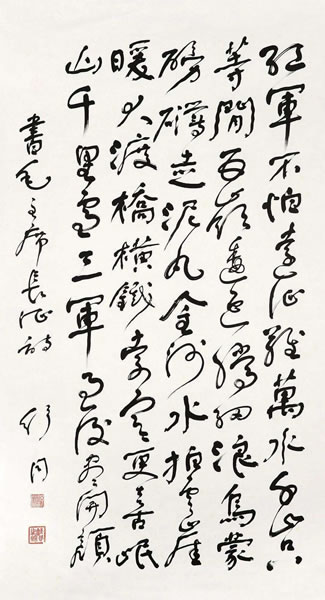 紅軍不怕遠征難萬水千山只
等閒五嶺逶迤騰細浪烏蒙
磅礴走泥丸金沙水拍雲崖
暖大渡橋橫鐵索寒更喜岷
山千里雪三軍過後盡開顏
書毛主席長征詩 舒同